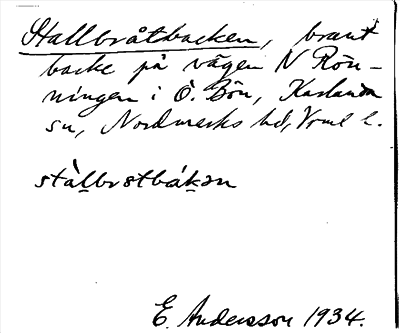 Stallbråtbacken, brant
backe på vägen N Rön-
ningen i Ö. Bön, Karlanda
sn, Nordmarks hd, Vrml l.
stàlbrotbákən
E. Andersson 1934.